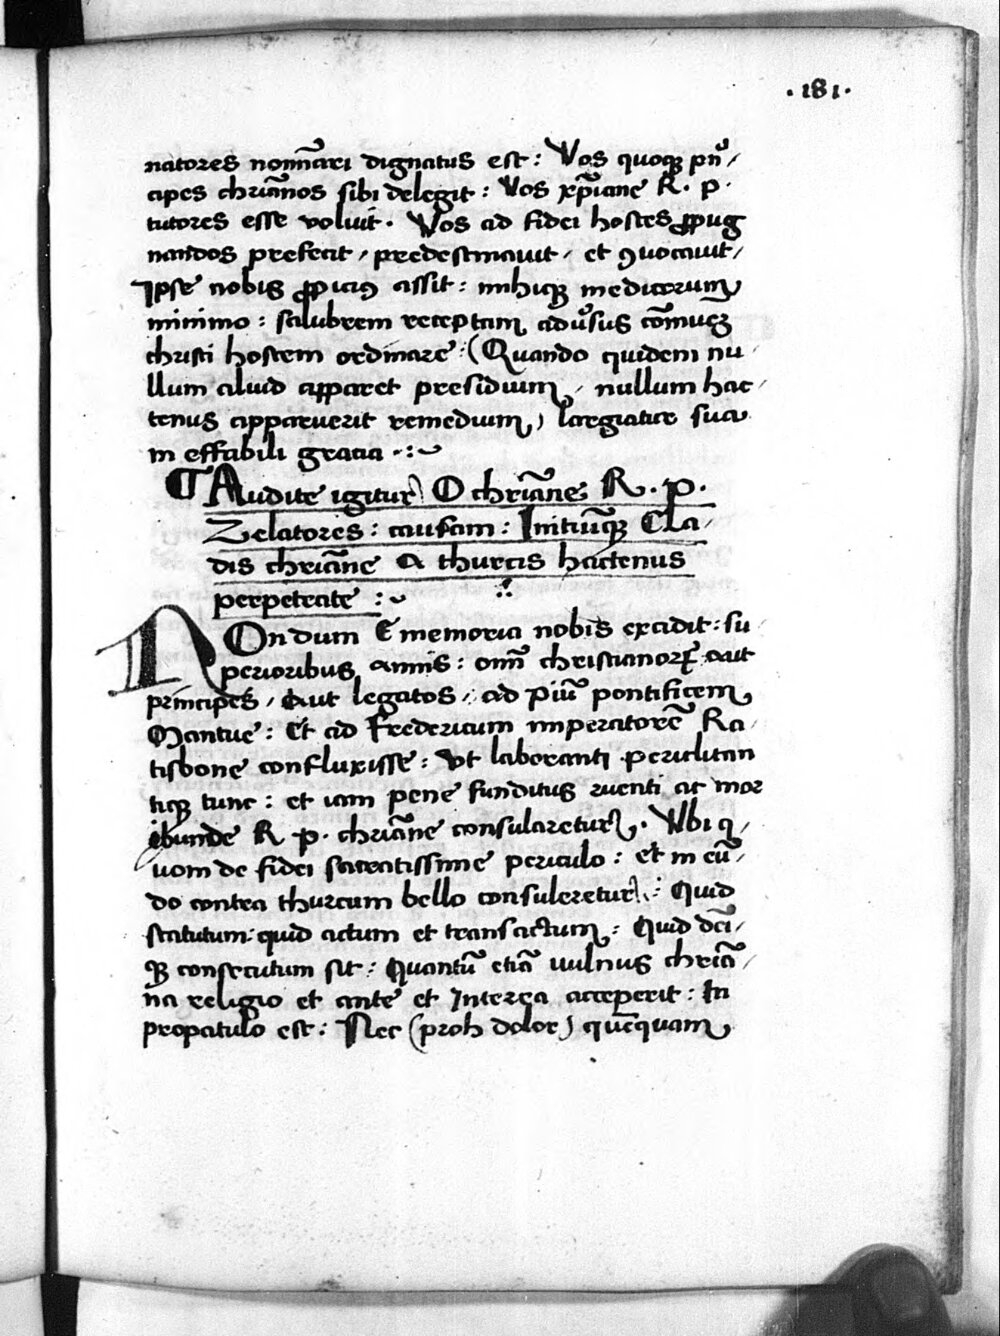 ·181·
natores nom̄nari dignatus est: Vos quoqȝ pn̄/
cipes chrīanos sibi delegit: Vos xp̄iane R. p.
tutores esse voluit. Vos ad fidei hostes ꝓpug
nandos prefecit, predestinauit, et ꝯuocauit,
Ipse nobis ꝓpiciꝰ assit: mihiqȝ medicorum
minimo: salubrem receptam aduͤsus cōmuēȝ
christi hostem ordinare: (Quando quidem nu
llum aliud apparet presidium, nullum hac,
tenus apparuerit remedium) largiatur sua
in effabili gratia.:~
¶ Audite igitur O chrīane R. p.
Zelatores: causam: Initiūqȝ Cla,
dis chrīane a thurcis hactenus
perpetrate:~
NOndum ē memoria nobis excidit: su
perioribus annis: om̄ christianorꝝ aut
principes, aut legatos, ad piū pontificem
Mantue: Et ad Fredericum imperatorē Ra,
tisbone confluxisse: Vt laboranti periclitan
tiqȝ tunc: et iam pene funditus ruenti ac mor
ibunde R p. chrīane consularetur. Vbi q,
uom de fidei sacratissime periculo: et in eū,
do contra thurcum bello consuleretur: Quid
statutum: quid actum et transactum: Quid dēi,
qȝ consecutum sit: Quantū etiā uulnus chriā,
na religio et ante et Interea acceperit: In
propatulo est: Nec (proh dolor) quēquam